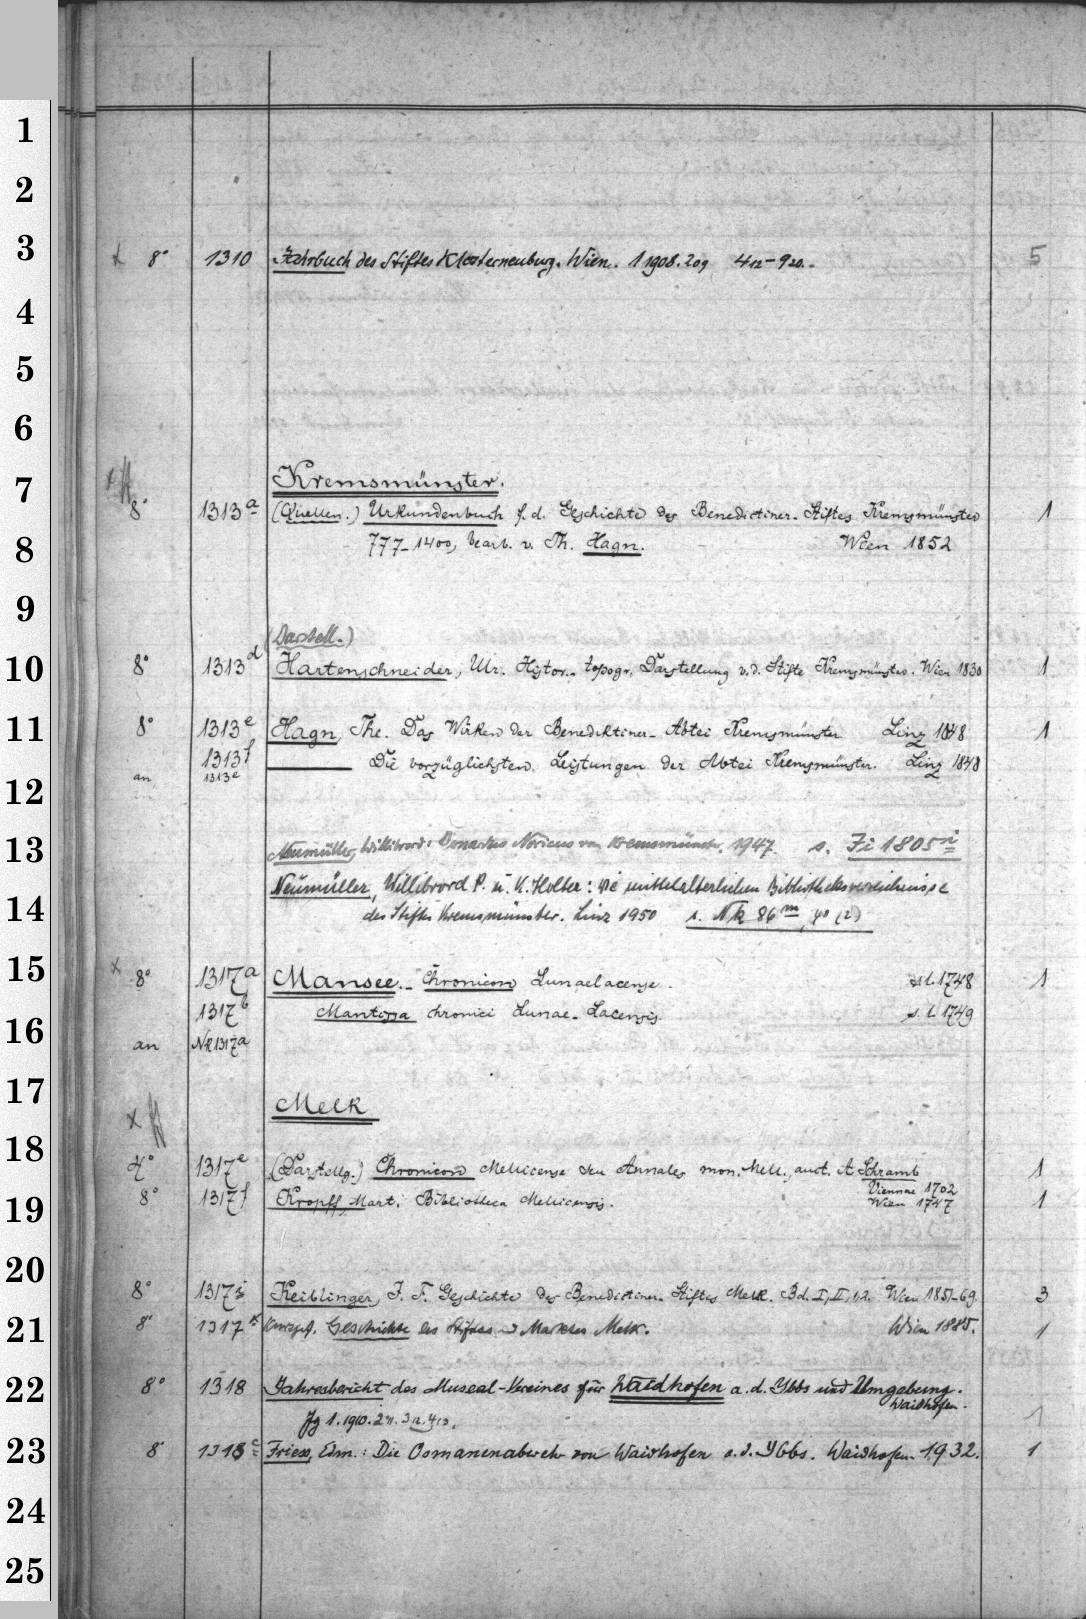 1
2
3 x 8° 1310 Jahrbuch des Stiftes Klosterneuburg. Wien. 1 1908. 2 09 4 12 - 9 20. 5
4
5
6
7 x Kremsmünster.
8° 1313 a (Quellen.) Urkundenbuch f. d. Geschichte des Benedictiner-Stiftes Kremsmünster 1
8 777-1400, bearb. v. Th. Hagn. Wien 1852
9
(Darstell.)
10 8° 1313 d Hartenschneider, Ulr. Histor.-topogr. Darstellung v. d. Stifte Kremsmünster. Wien 1830 1
11 8° 1313 e Hagn, The. Das Wirken der Benediktiner-Abtei Kremsmünster Linz 1848 1
1313 f Die vorzüglichsten Leistungen der Abtei Kremsmünster. Linz 1848
an 1313 e
12
13 Neumüller, Willibrord: Bernardus Noricus von Kremsmünster. 1947. s. Fi 1805 i
Neumüller, Willibrord P. u. K. Holter: Die mittelalterlichen Bibliotheksverzeichnisse
14 des Stiftes Kremsmünster. Linz 1950 s. Nk 86 m, 40 (2)
15 x 8° 1317 a Mansee.- Chronicon Lunaelacense. s. l. 1748 1
1317 b Mantissa chronici Lunae-Lacensis. s. l. 1749
16 an Nk 1317 a
17
Melk
x
18
4° 1317 e (Darstellg.) Chronicon Mellicense seu Annales mon. Mell., auct. A. Schramb 1
Viennae 1702
19 8° 1317 f Kropff, Mart. Bibliotheca Mellicensis. Wien 1747 1
20
8° 1317 i Keiblinger, I. F. Geschichte des Benedictiner-Stiftes Melk. Bd. I, II, 1.2. Wien 1851-69. 3
21 8° 1317 k Kurzgef. Geschichte des Stiftes u Marktes Melk. Wien 1885. 1
22 8° 1318 Jahresbericht des Museal-Vereines für Waidhofen a. d. Ybbs und Umgebung.
Waidhofen.
Jg 1. 1910. 2 11. 3 12. 4 13. 1
23 8° 1318 c Friess, Edm.: Die Osmanenabwehr von Waidhofen a. d. Ybbs. Waidhofen. 1932. 1
24
25